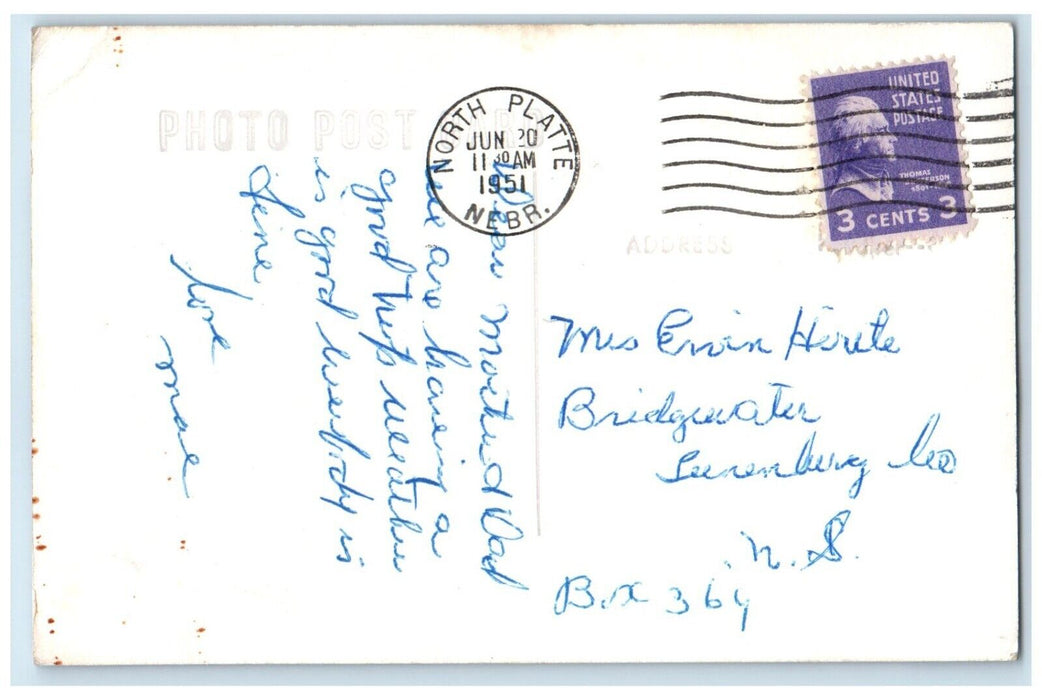 PHOTO POST CARD
NORTH PLATTE
JUN 20
11 30 AM
1951
NEBR.
UNITED
STATES
POSTAGE
THOMAS
JEFFERSON
3 CENTS 3
ADDRESS
Dear Mother and Dad
we are having a
good trip weather
is good everybody is
fine
love
mae
Mrs Ervin Hirtle
Bridgewater
Lunenburg Co
N. S.
Box 364